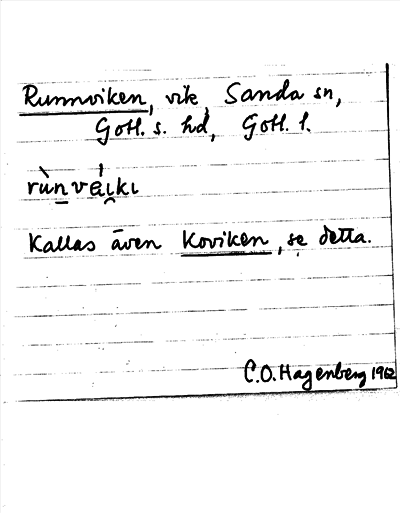 Runnviken, vik, Sanda sn,
Gotl. s. hd, Gotl. l.
rùn̠vái̯kı
Kallas även Koviken, se detta.
C.O. Hagenberg 1962